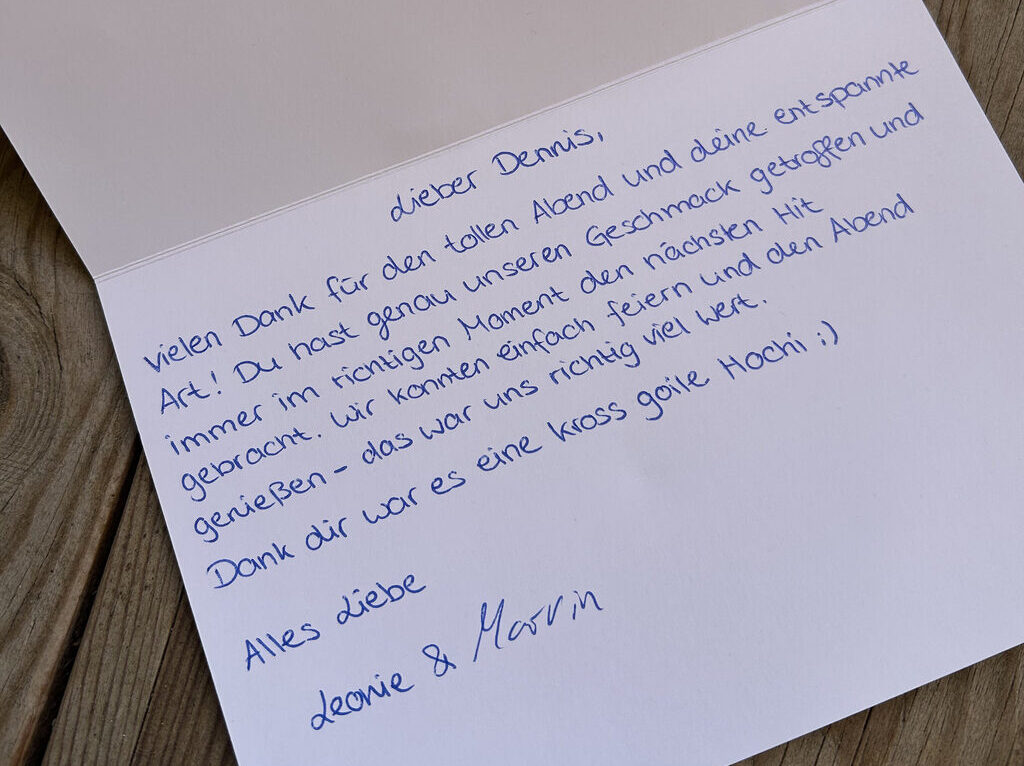 Lieber Dennis,
vielen Dank für den tollen Abend und deine entspannte
Art! Du hast genau unseren Geschmack getroffen und
immer im richtigen Moment den nächsten Hit
gebracht. Wir konnten einfach feiern und den Abend
genießen - das war uns richtig viel wert.
Dank dir war es eine kross goile Hochi :)
Alles Liebe
Leonie & Marvin